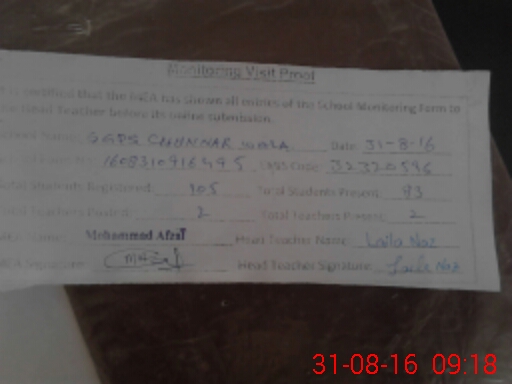 Monitoring Visit Proof
is certified that the MEA has shown all entries of the School Monitoring Form to
the Head Teacher before its online submission.
School Name: GGPS CHUNNAR WALA Date: 31-8-16
Form No: EMIS Code: 32320596
Total Students Registered: 105 Total Students Present: 93
Total Teachers Posted: 2 Total Teachers Present: 2
MEA Name: Mohammad Afzal Head Teacher Name: Laila Naz
MEA Signature: Head Teacher Signature: Laila Naz
31-08-16 09:18